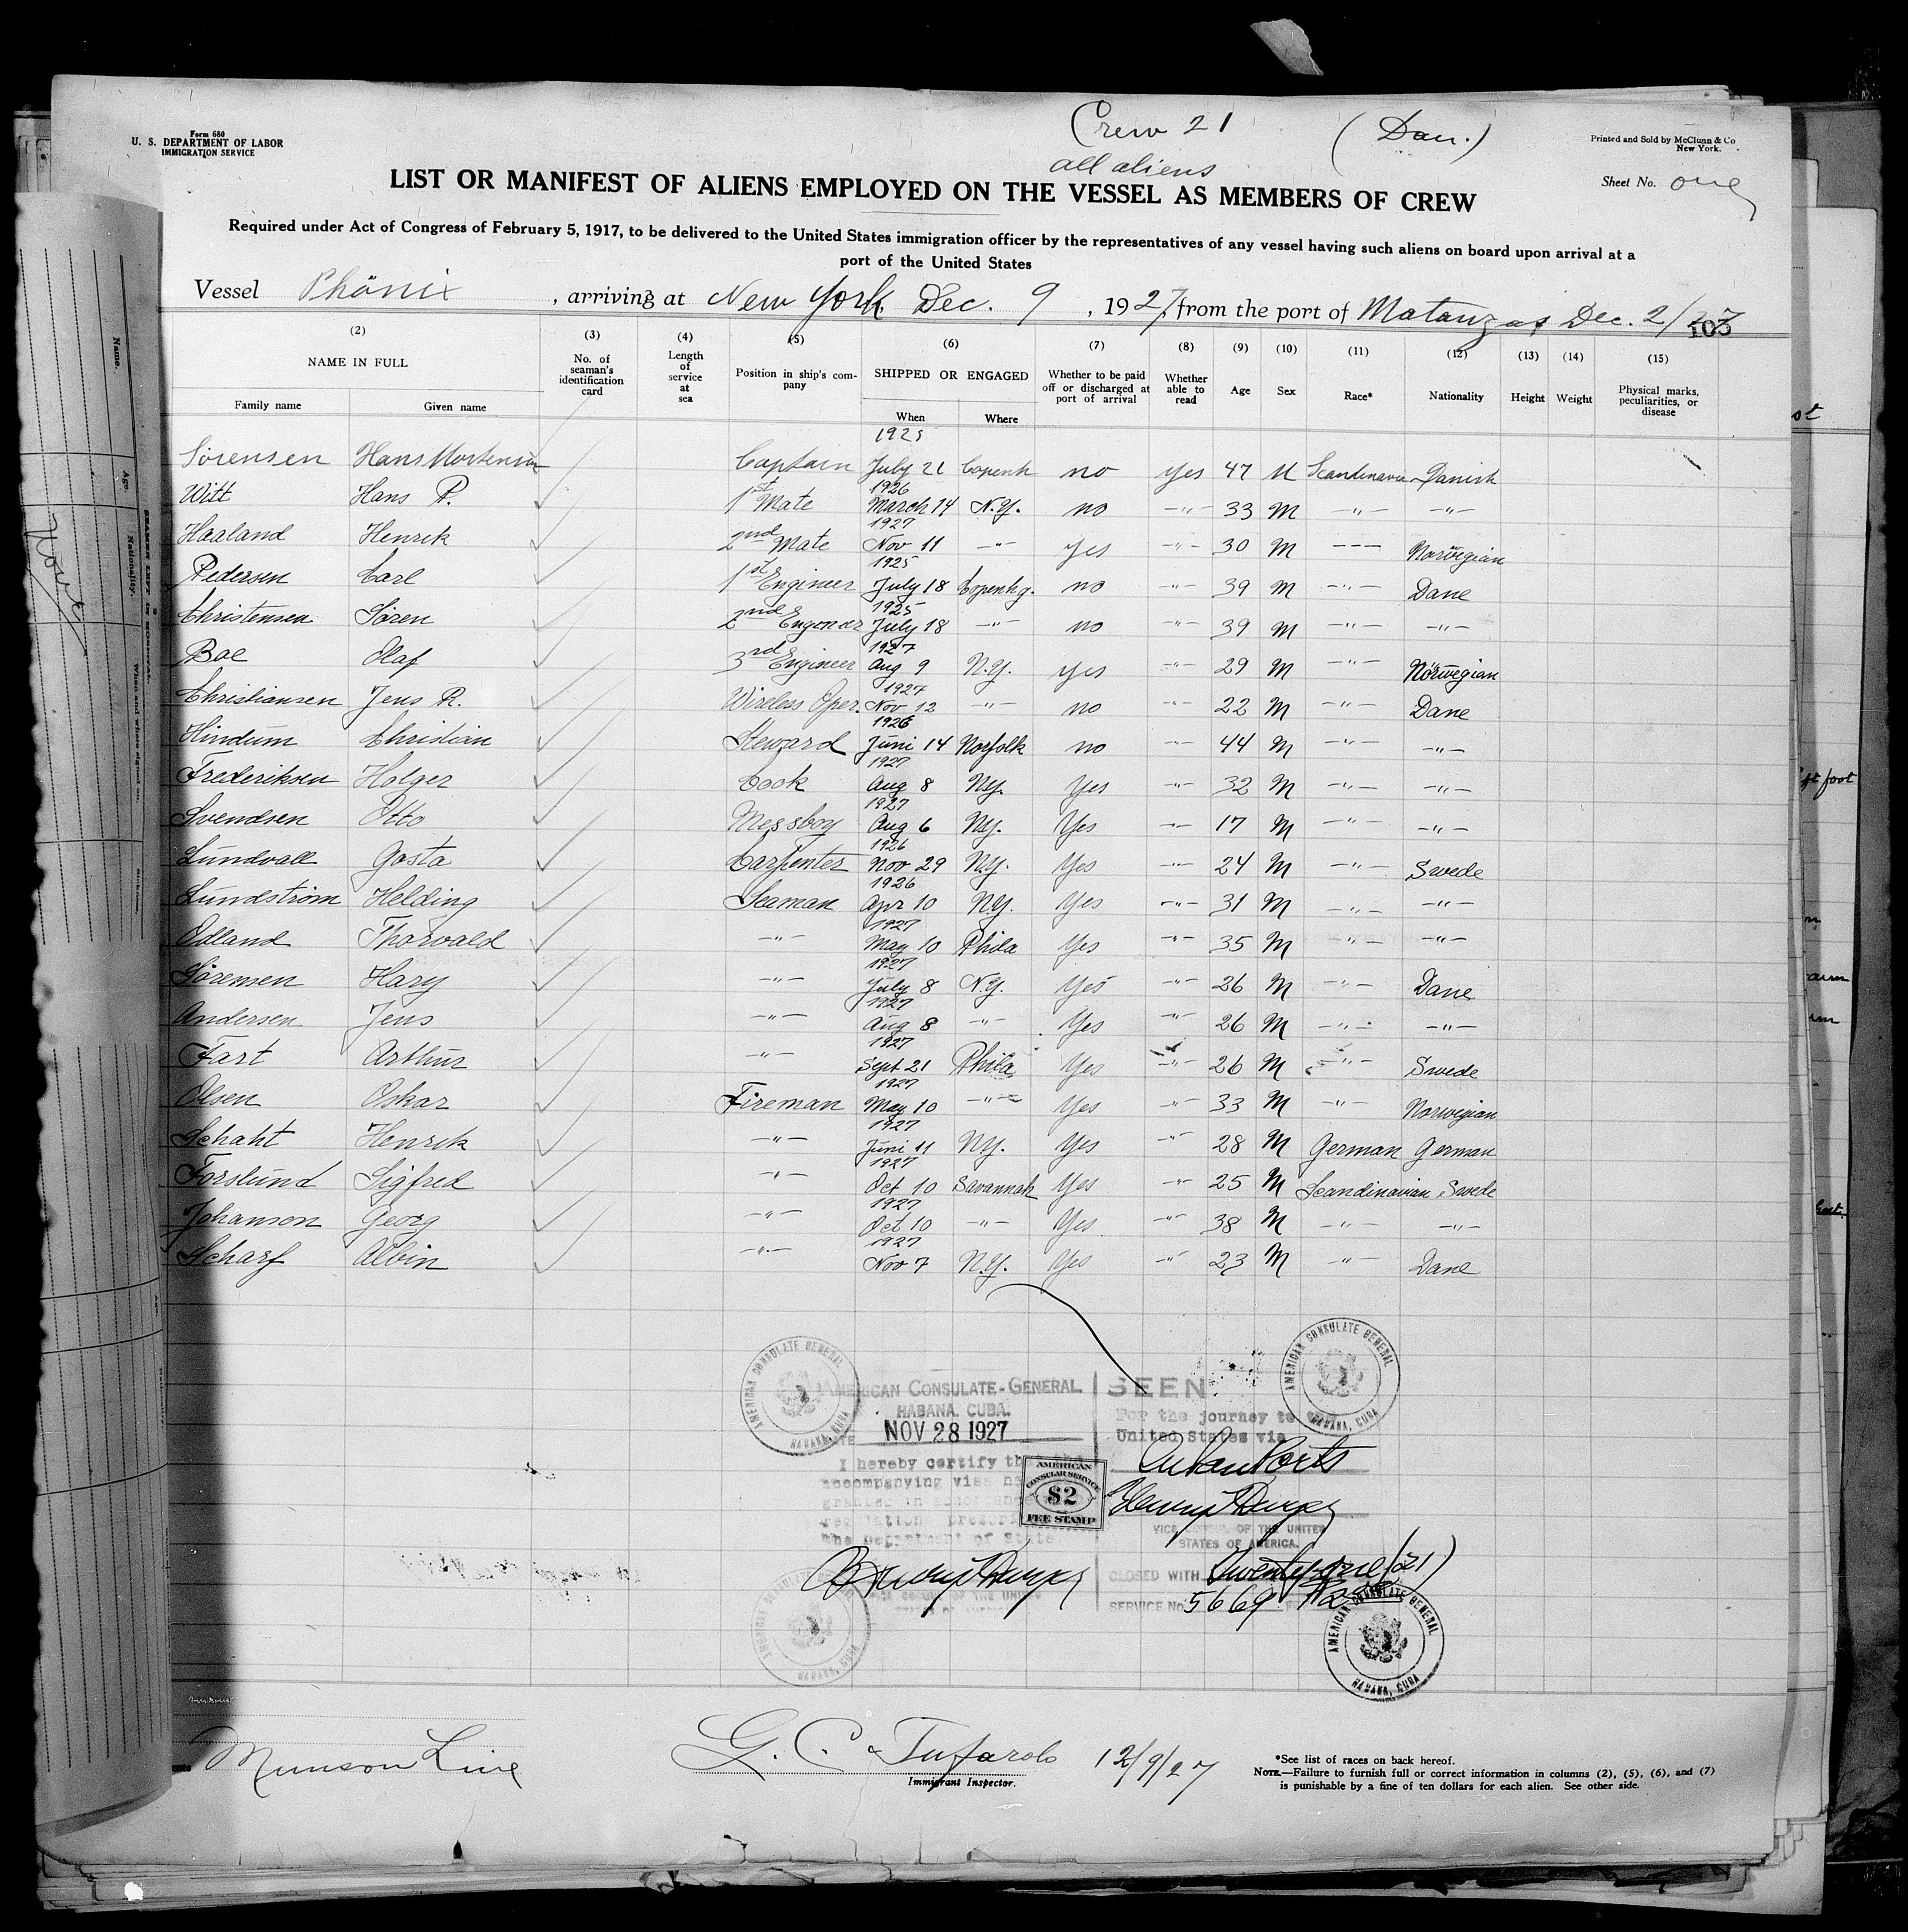 Crew 21 (Dan.)
all aliens
Form 680
U. S. DEPARTMENT OF LABOR
IMMIGRATION SERVICE
Printed and Sold by McClunn & Co
New York.
Sheet No. one
LIST OR MANIFEST OF ALIENS EMPLOYED ON THE VESSEL AS MEMBERS OF CREW
Required under Act of Congress of February 5, 1917, to be delivered to the United States immigration officer by the representatives of any vessel having such aliens on board upon arrival at a
port of the United States
Vessel Phönix, arriving at New York Dec. 9, 1927, from the port of Matanzas Dec. 2/27
103
(2) (3) (4) (5) (6) (7) (8) (9) (10) (11) (12) (13) (14) (15)
NAME IN FULL No. of seaman's identification card Length of service at sea Position in ship's company SHIPPED OR ENGAGED Whether to be paid off or discharged at port of arrival Whether able to read Age Sex Race* Nationality Height Weight Physical marks, peculiarities, or disease
Family name Given name When Where
Sörensen Hans Mortensen Captain 1925 July 21 Copenh no yes 47 M Scandinavia Danish
Witt Hans P. 1st Mate 1926 March 14 N.Y. no -"- 33 M -"- -"-
Haaland Henrik 2nd Mate 1927 Nov 11 -"- yes -"- 30 M --- Norwegian
Pedersen Carl 1st Engineer 1925 July 18 Copenhg. no -"- 39 M -"- Dane
Christensen Sören 2nd Engeneer 1925 July 18 -"- no -"- 39 M -"- -"-
Boe Olaf 3rd Engineer 1927 Aug 9 N.Y. yes -"- 29 M -"- Norwegian
Christiansen Jens R. Wireless Oper. 1927 Nov 12 -"- no -"- 22 M -"- Dane
Hindum Christian Steward 1926 Juni 14 Norfolk no -"- 44 M -"- -"-
Frederiksen Holger Cook 1927 Aug 8 Ny. Yes -"- 32 M -"- -"-
Svendsen Otto Messboy 1927 Aug 6 Ny. Yes -"- 17 M -"- -"-
Lundvall Gosta Carpenter 1926 Nov 29 N.y. Yes -"- 24 M -"- Swede
Lundström Helding Seaman 1926 Apr 10 N.y. Yes -"- 31 M -"- -"-
Odland Thorvald -"- 1927 May 10 Phila Yes -"- 35 M -"- -"-
Sörensen Hary -"- 1927 July 8 N.y. Yes -"- 26 M -"- Dane
Andersen Jens -"- 1927 Aug 8 -"- Yes -"- 26 M -"- -"-
Fart Arthur -"- 1927 Sept 21 Phila Yes -"- 26 M -"- Swede
Olsen Oskar Fireman 1927 May 10 -"- Yes -"- 33 M -"- Norwegian
Schaht Henrik -"- 1927 Juni 11 Ny. Yes -"- 28 M German German
Forslund Sigfred -"- 1927 Oct 10 Savannah Yes -"- 25 M Scandinavian Swede
Johanson Georg -"- 1927 Oct 10 -"- Yes -"- 38 M -"- -"-
Scharf Albin -"- 1927 Nov 7 N.y. Yes -"- 23 M -"- Dane
AMERICAN CONSULATE GENERAL HABANA, CUBA
AMERICAN CONSULATE-GENERAL
HABANA, CUBA.
DATE NOV 28 1927
I hereby certify that the
accompanying visa has
granted in accordance
regulations prescri
the Department of State.
AMERICAN
CONSULAR SERVICE
$2
FEE STAMP
SEEN
For the journey to the
United States via
Cuban Ports
VICE CONSUL OF THE UNITED
STATES OF AMERICA.
CLOSED WITH Twenty-one (21)
SERVICE No. 5669
AMERICAN CONSULATE GENERAL HABANA, CUBA
AMERICAN CONSULATE GENERAL HABANA, CUBA
AMERICAN CONSULATE GENERAL HABANA, CUBA
Munson Line
G. C. Tufarolo 12/9/27
Immigrant Inspector.
*See list of races on back hereof.
NOTE.—Failure to furnish full or correct information in columns (2), (5), (6), and (7)
is punishable by a fine of ten dollars for each alien. See other side.
Name.
Age.
Nationality.
When and where signed on.
None